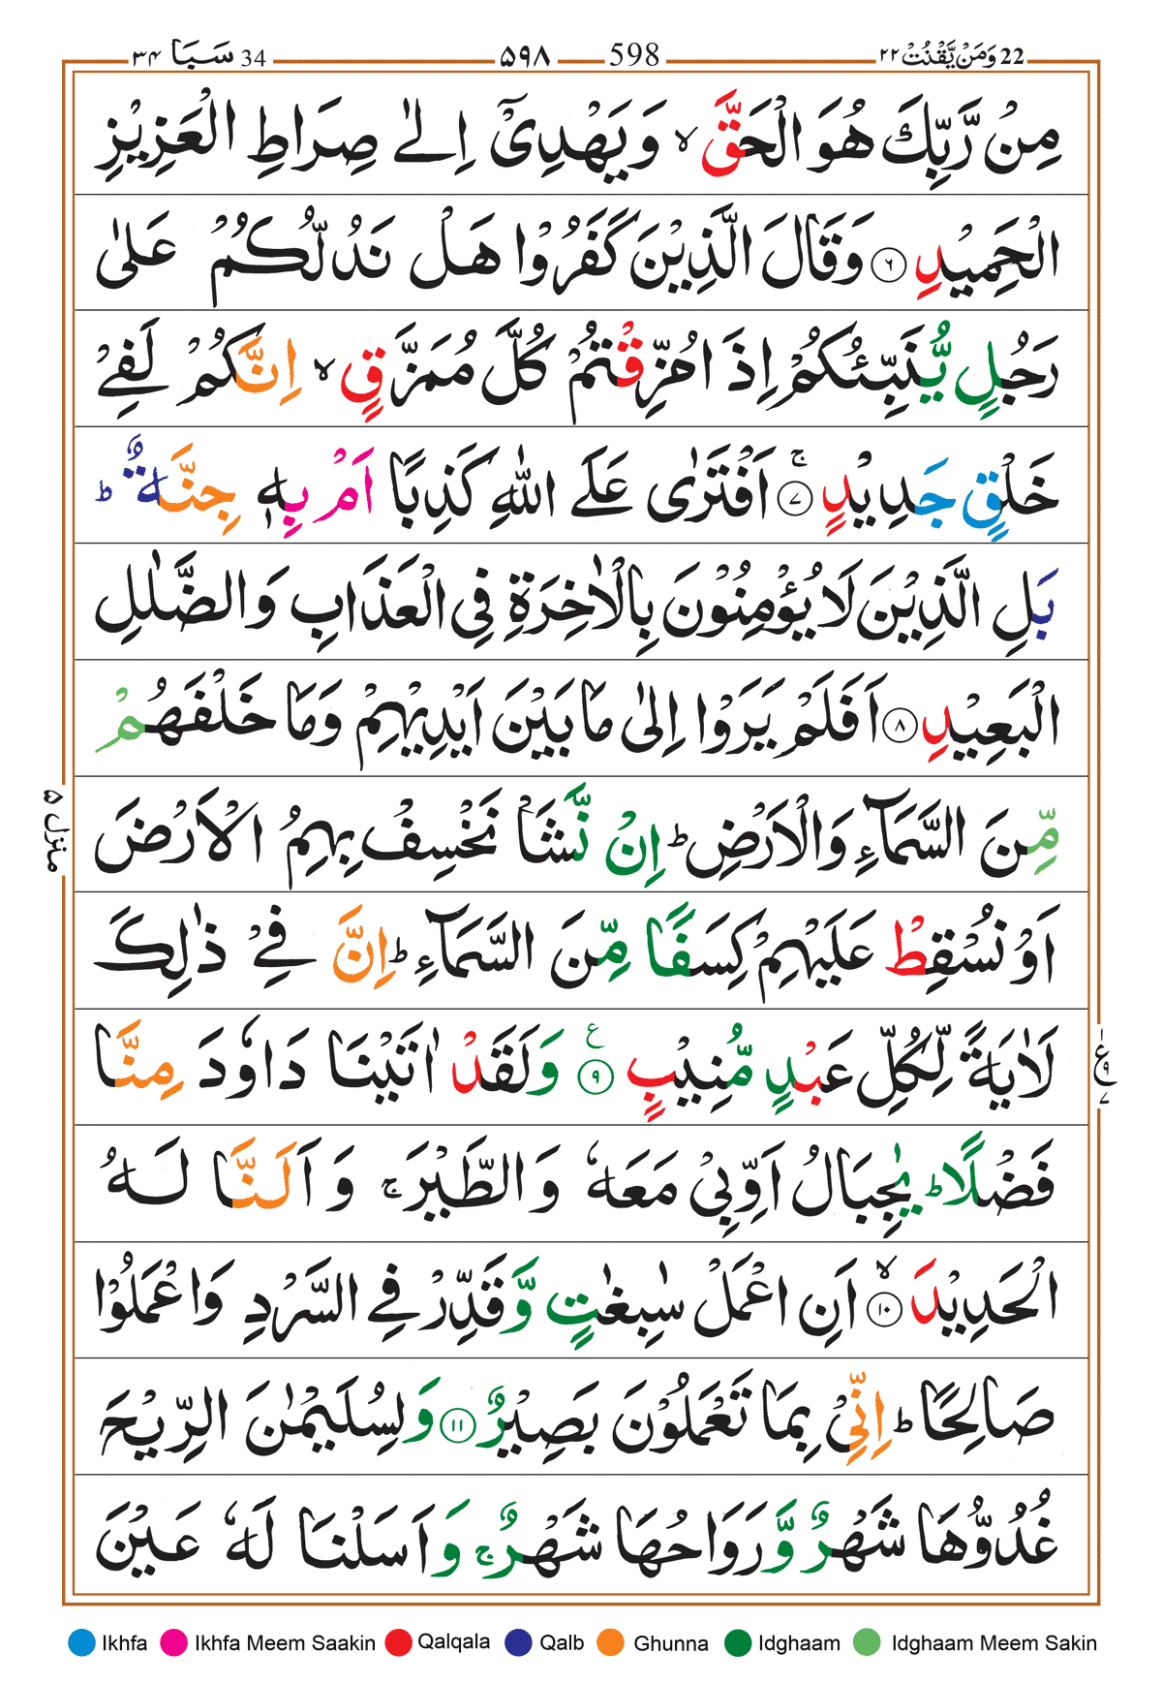 22 وَمَنْ يَّقْنُتْ ۲۲ 598 ۵۹۸ 34 سَبَا ۳۴
مِنْ رَّبِّكَ هُوَ الْحَقَّ ۙ وَيَهْدِيْٓ اِلٰى صِرَاطِ الْعَزِيْزِ
الْحَمِيْدِ ۶ وَقَالَ الَّذِيْنَ كَفَرُوْا هَلْ نَدُلُّكُمْ عَلٰى
رَجُلٍ يُّنَبِّئُكُمْ اِذَا مُزِّقْتُمْ كُلَّ مُمَزَّقٍ ۙ اِنَّكُمْ لَفِيْ
خَلْقٍ جَدِيْدٍ ۚ ۷ اَفْتَرٰى عَلَى اللّٰهِ كَذِبًا اَمْ بِهٖ جِنَّةٌ ؕ
بَلِ الَّذِيْنَ لَا يُؤْمِنُوْنَ بِالْاٰخِرَةِ فِى الْعَذَابِ وَالضَّلٰلِ
الْبَعِيْدِ ۸ اَفَلَمْ يَرَوْا اِلٰى مَا بَيْنَ اَيْدِيْهِمْ وَمَا خَلْفَهُمْ
مِّنَ السَّمَآءِ وَالْاَرْضِ ؕ اِنْ نَّشَاْ نَخْسِفْ بِهِمُ الْاَرْضَ
اَوْ نُسْقِطْ عَلَيْهِمْ كِسَفًا مِّنَ السَّمَآءِ ؕ اِنَّ فِيْ ذٰلِكَ
لَاٰيَةً لِّكُلِّ عَبْدٍ مُّنِيْبٍ ۹ ع وَلَقَدْ اٰتَيْنَا دَاوٗدَ مِنَّا
فَضْلًا ؕ يٰجِبَالُ اَوِّبِيْ مَعَهٗ وَالطَّيْرَ ۚ وَاَلَنَّا لَهُ
الْحَدِيْدَ ۙ ۱۰ اَنِ اعْمَلْ سٰبِغٰتٍ وَّقَدِّرْ فِي السَّرْدِ وَاعْمَلُوْا
صَالِحًا ؕ اِنِّيْ بِمَا تَعْمَلُوْنَ بَصِيْرٌ ۱۱ وَلِسُلَيْمٰنَ الرِّيْحَ
غُدُوُّهَا شَهْرٌ وَّرَوَاحُهَا شَهْرٌ ۚ وَاَسَلْنَا لَهٗ عَيْنَ
منزل ۵
ع ۹ ۷
Ikhfa Ikhfa Meem Saakin Qalqala Qalb Ghunna Idghaam Idghaam Meem Sakin